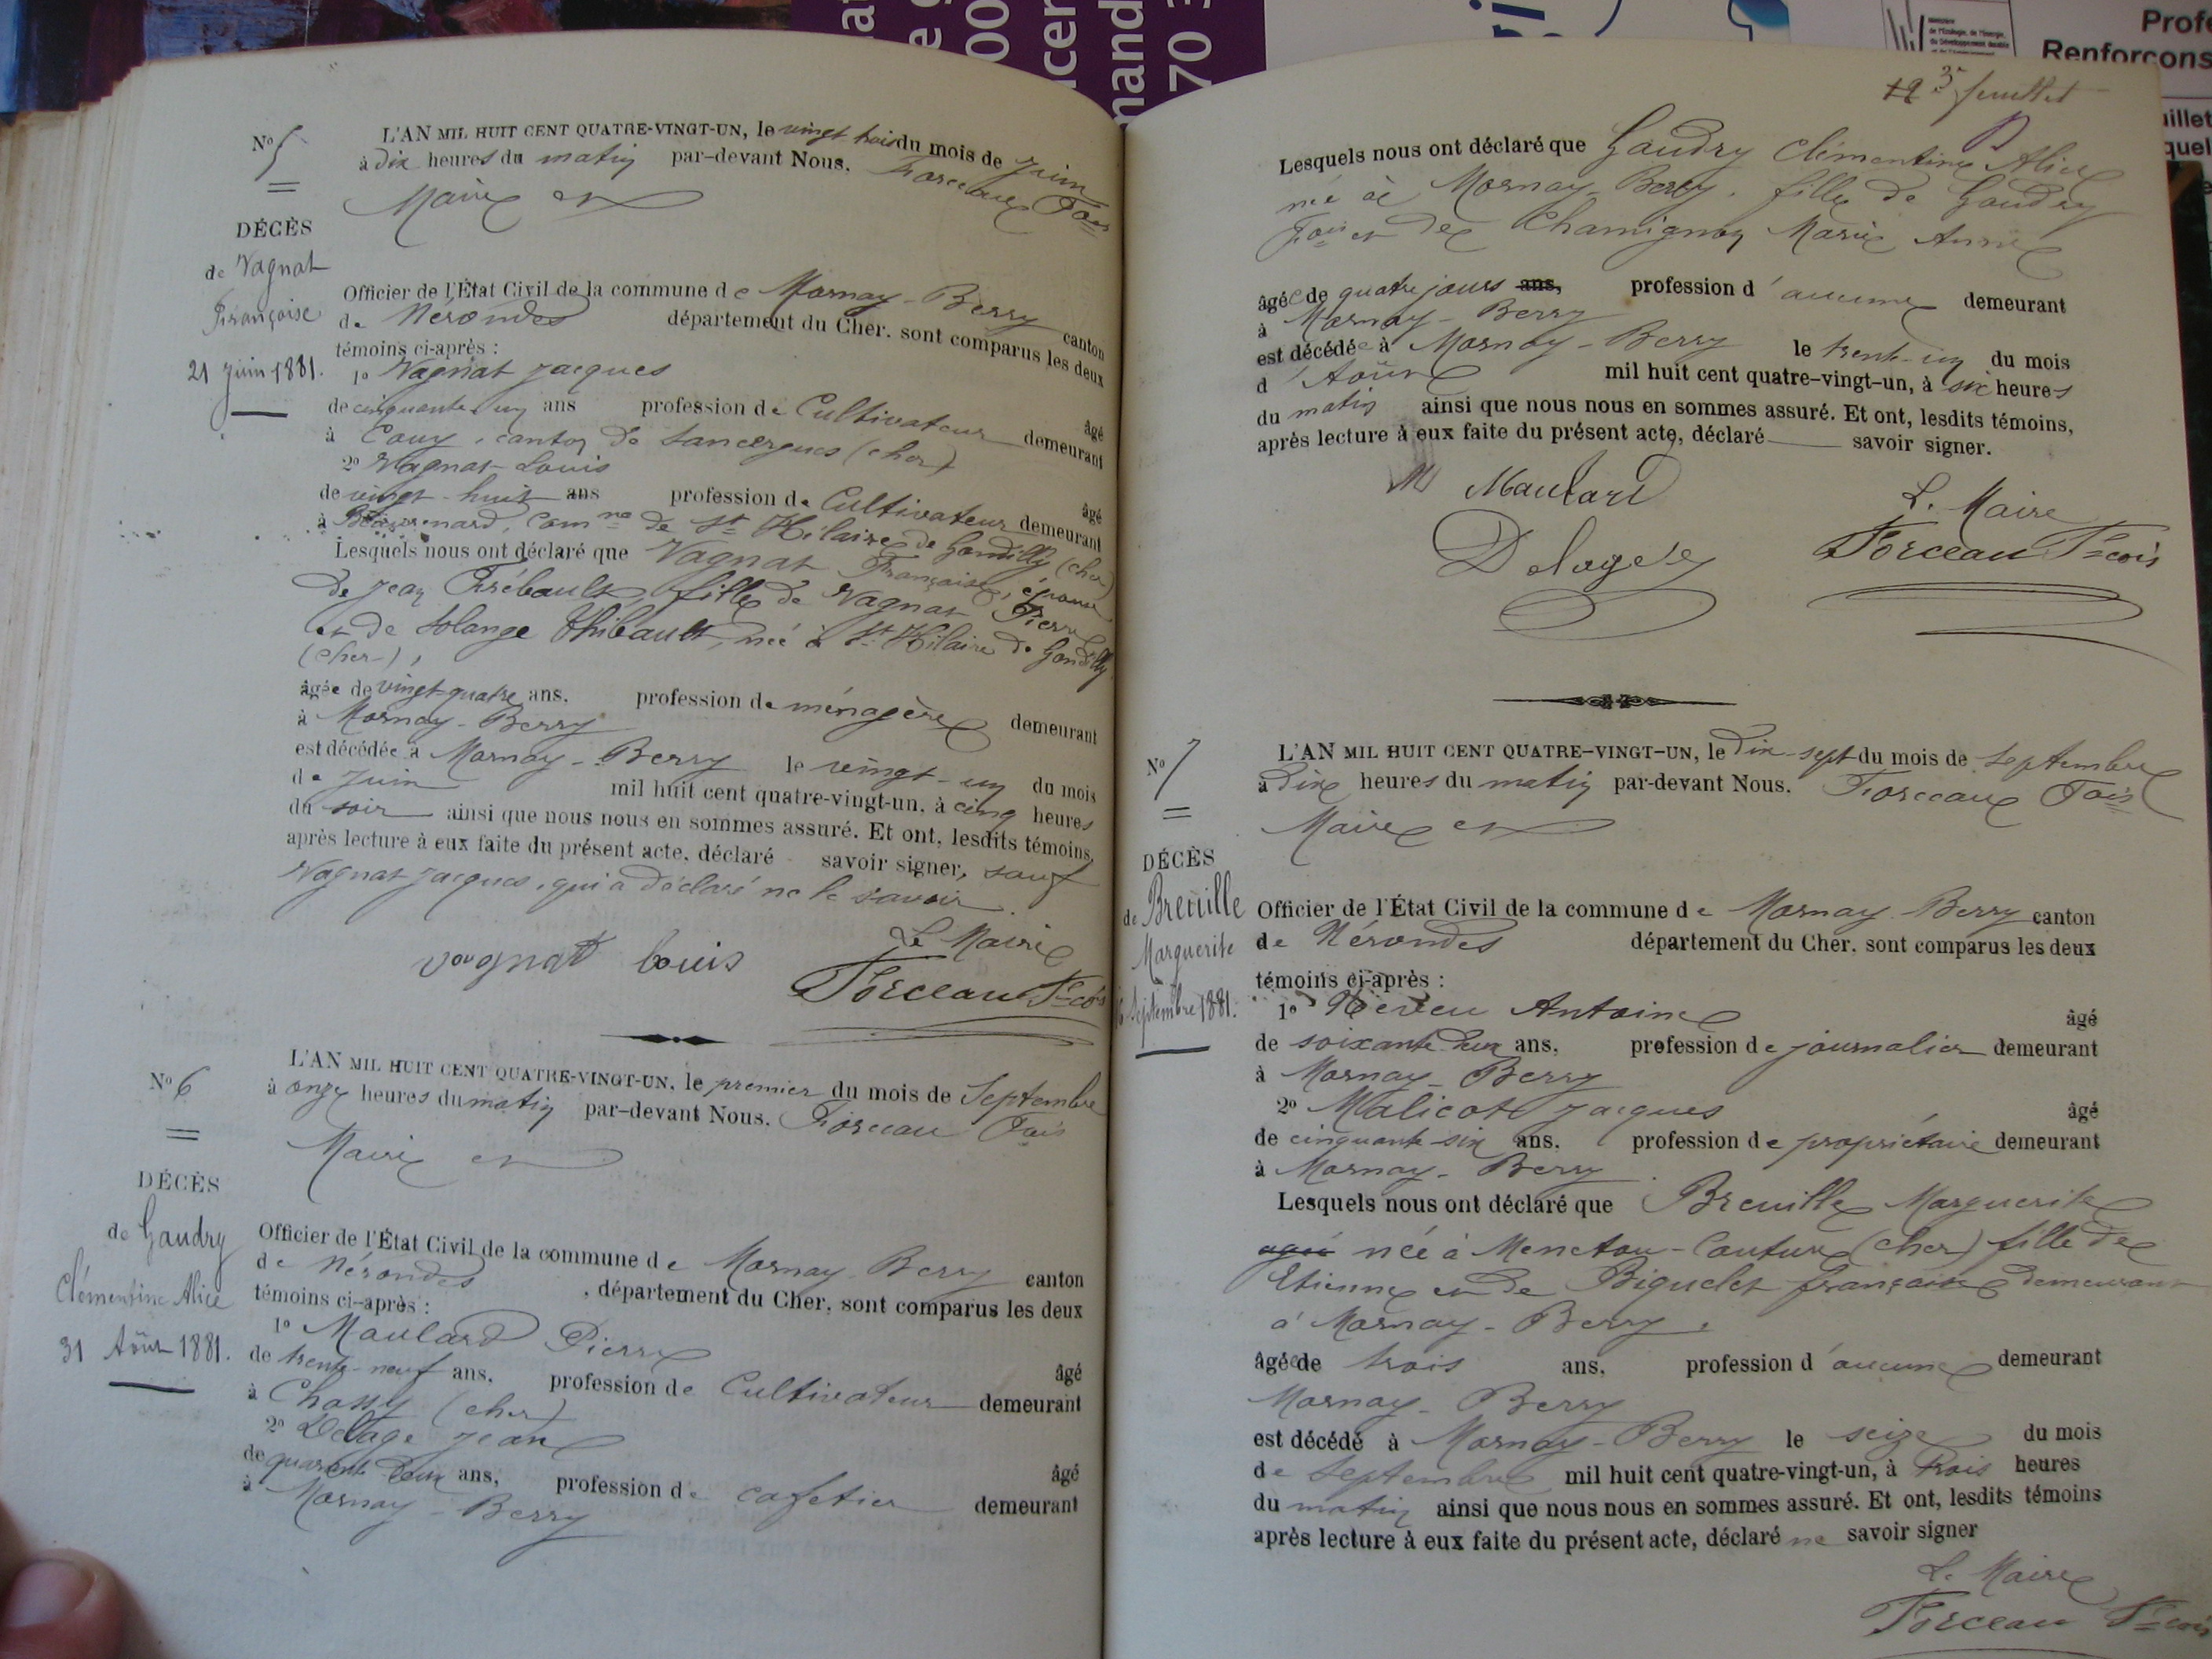 No 5
=
DÉCÈS
de Vagnat
Françoise
21 Juin 1881.
L'AN MIL HUIT CENT QUATRE-VINGT-UN, le vingt trois du mois de Juin
à dix heures du matin par-devant Nous, Forceau Fois
Maire et
Officier de l'État Civil de la commune de Mornay-Berry canton
de Nérondes département du Cher, sont comparus les deux
témoins ci-après :
1o Vagnat Jacques âgé
de cinquante-un ans profession de Cultivateur demeurant
à Couy, canton de Sancergues (cher)
2o Vagnat Louis âgé
de vingt-huit ans profession de Cultivateur demeurant
à com ne de St Hilaire de Gondilly (cher)
Lesquels nous ont déclaré que Vagnat Françoise, épouse
de Jean Frébault, fille de Vagnat Pierre
et de Solange Thibault, née à St Hilaire de Gondilly
(Cher),
âgée de vingt-quatre ans, profession de ménagère demeurant
à Mornay-Berry
est décédée à Mornay-Berry le vingt-un du mois
de Juin mil huit cent quatre-vingt-un, à cinq heures
du soir ainsi que nous nous en sommes assuré. Et ont, lesdits témoins,
après lecture à eux faite du présent acte, déclaré savoir signer, sauf
Vagnat Jacques, qui a déclaré ne le savoir.
vagnat louis
Le Maire
Forceau Fcois
No 6
=
DÉCÈS
de Gaudry
Clémentine Alice
31 Août 1881.
L'AN MIL HUIT CENT QUATRE-VINGT-UN, le premier du mois de Septembre
à onze heures du matin par-devant Nous, Forceau Fois
Maire et
Officier de l'État Civil de la commune de Mornay-Berry canton
de Nérondes, département du Cher, sont comparus les deux
témoins ci-après :
1o Maulard Pierre âgé
de trente-neuf ans, profession de Cultivateur demeurant
à Chassy (cher)
2o Delage Jean âgé
de quarante deux ans, profession de cafetier demeurant
à Mornay-Berry
3e feuillet
Lesquels nous ont déclaré que Gaudry Clémentine Alice
née à Mornay-Berry, fille de Gaudry
Fois et de Chamignon Marie Anne
âgée de quatre jours ans, profession d'aucune demeurant
à Mornay-Berry
est décédée à Mornay-Berry le trente-un du mois
d'Août mil huit cent quatre-vingt-un, à six heures
du matin ainsi que nous nous en sommes assuré. Et ont, lesdits témoins,
après lecture à eux faite du présent acte, déclaré savoir signer.
Maulard
Delage
L. Maire
Forceau Fcois
No 7
=
DÉCÈS
de Breuille
Marguerite
16 Septembre 1881.
L'AN MIL HUIT CENT QUATRE-VINGT-UN, le dix-sept du mois de Septembre
à dix heures du matin par-devant Nous, Forceau Fois
Maire et
Officier de l'État Civil de la commune de Mornay-Berry canton
de Nérondes département du Cher, sont comparus les deux
témoins ci-après :
1o Neveu Antoine âgé
de soixante deux ans, profession de journalier demeurant
à Mornay-Berry
2o Malicot Jacques âgé
de cinquante-six ans, profession de propriétaire demeurant
à Mornay-Berry
Lesquels nous ont déclaré que Breuille Marguerite
née à Menetou-Couture (cher) fille de
Etienne et de Biguelet françoise demeurant
à Mornay-Berry.
âgée de trois ans, profession d'aucune demeurant
Mornay-Berry
est décédé à Mornay-Berry le seize du mois
de Septembre mil huit cent quatre-vingt-un, à trois heures
du matin ainsi que nous nous en sommes assuré. Et ont, lesdits témoins
après lecture à eux faite du présent acte, déclaré ne savoir signer
L. Maire
Forceau Fcois
Renforçons